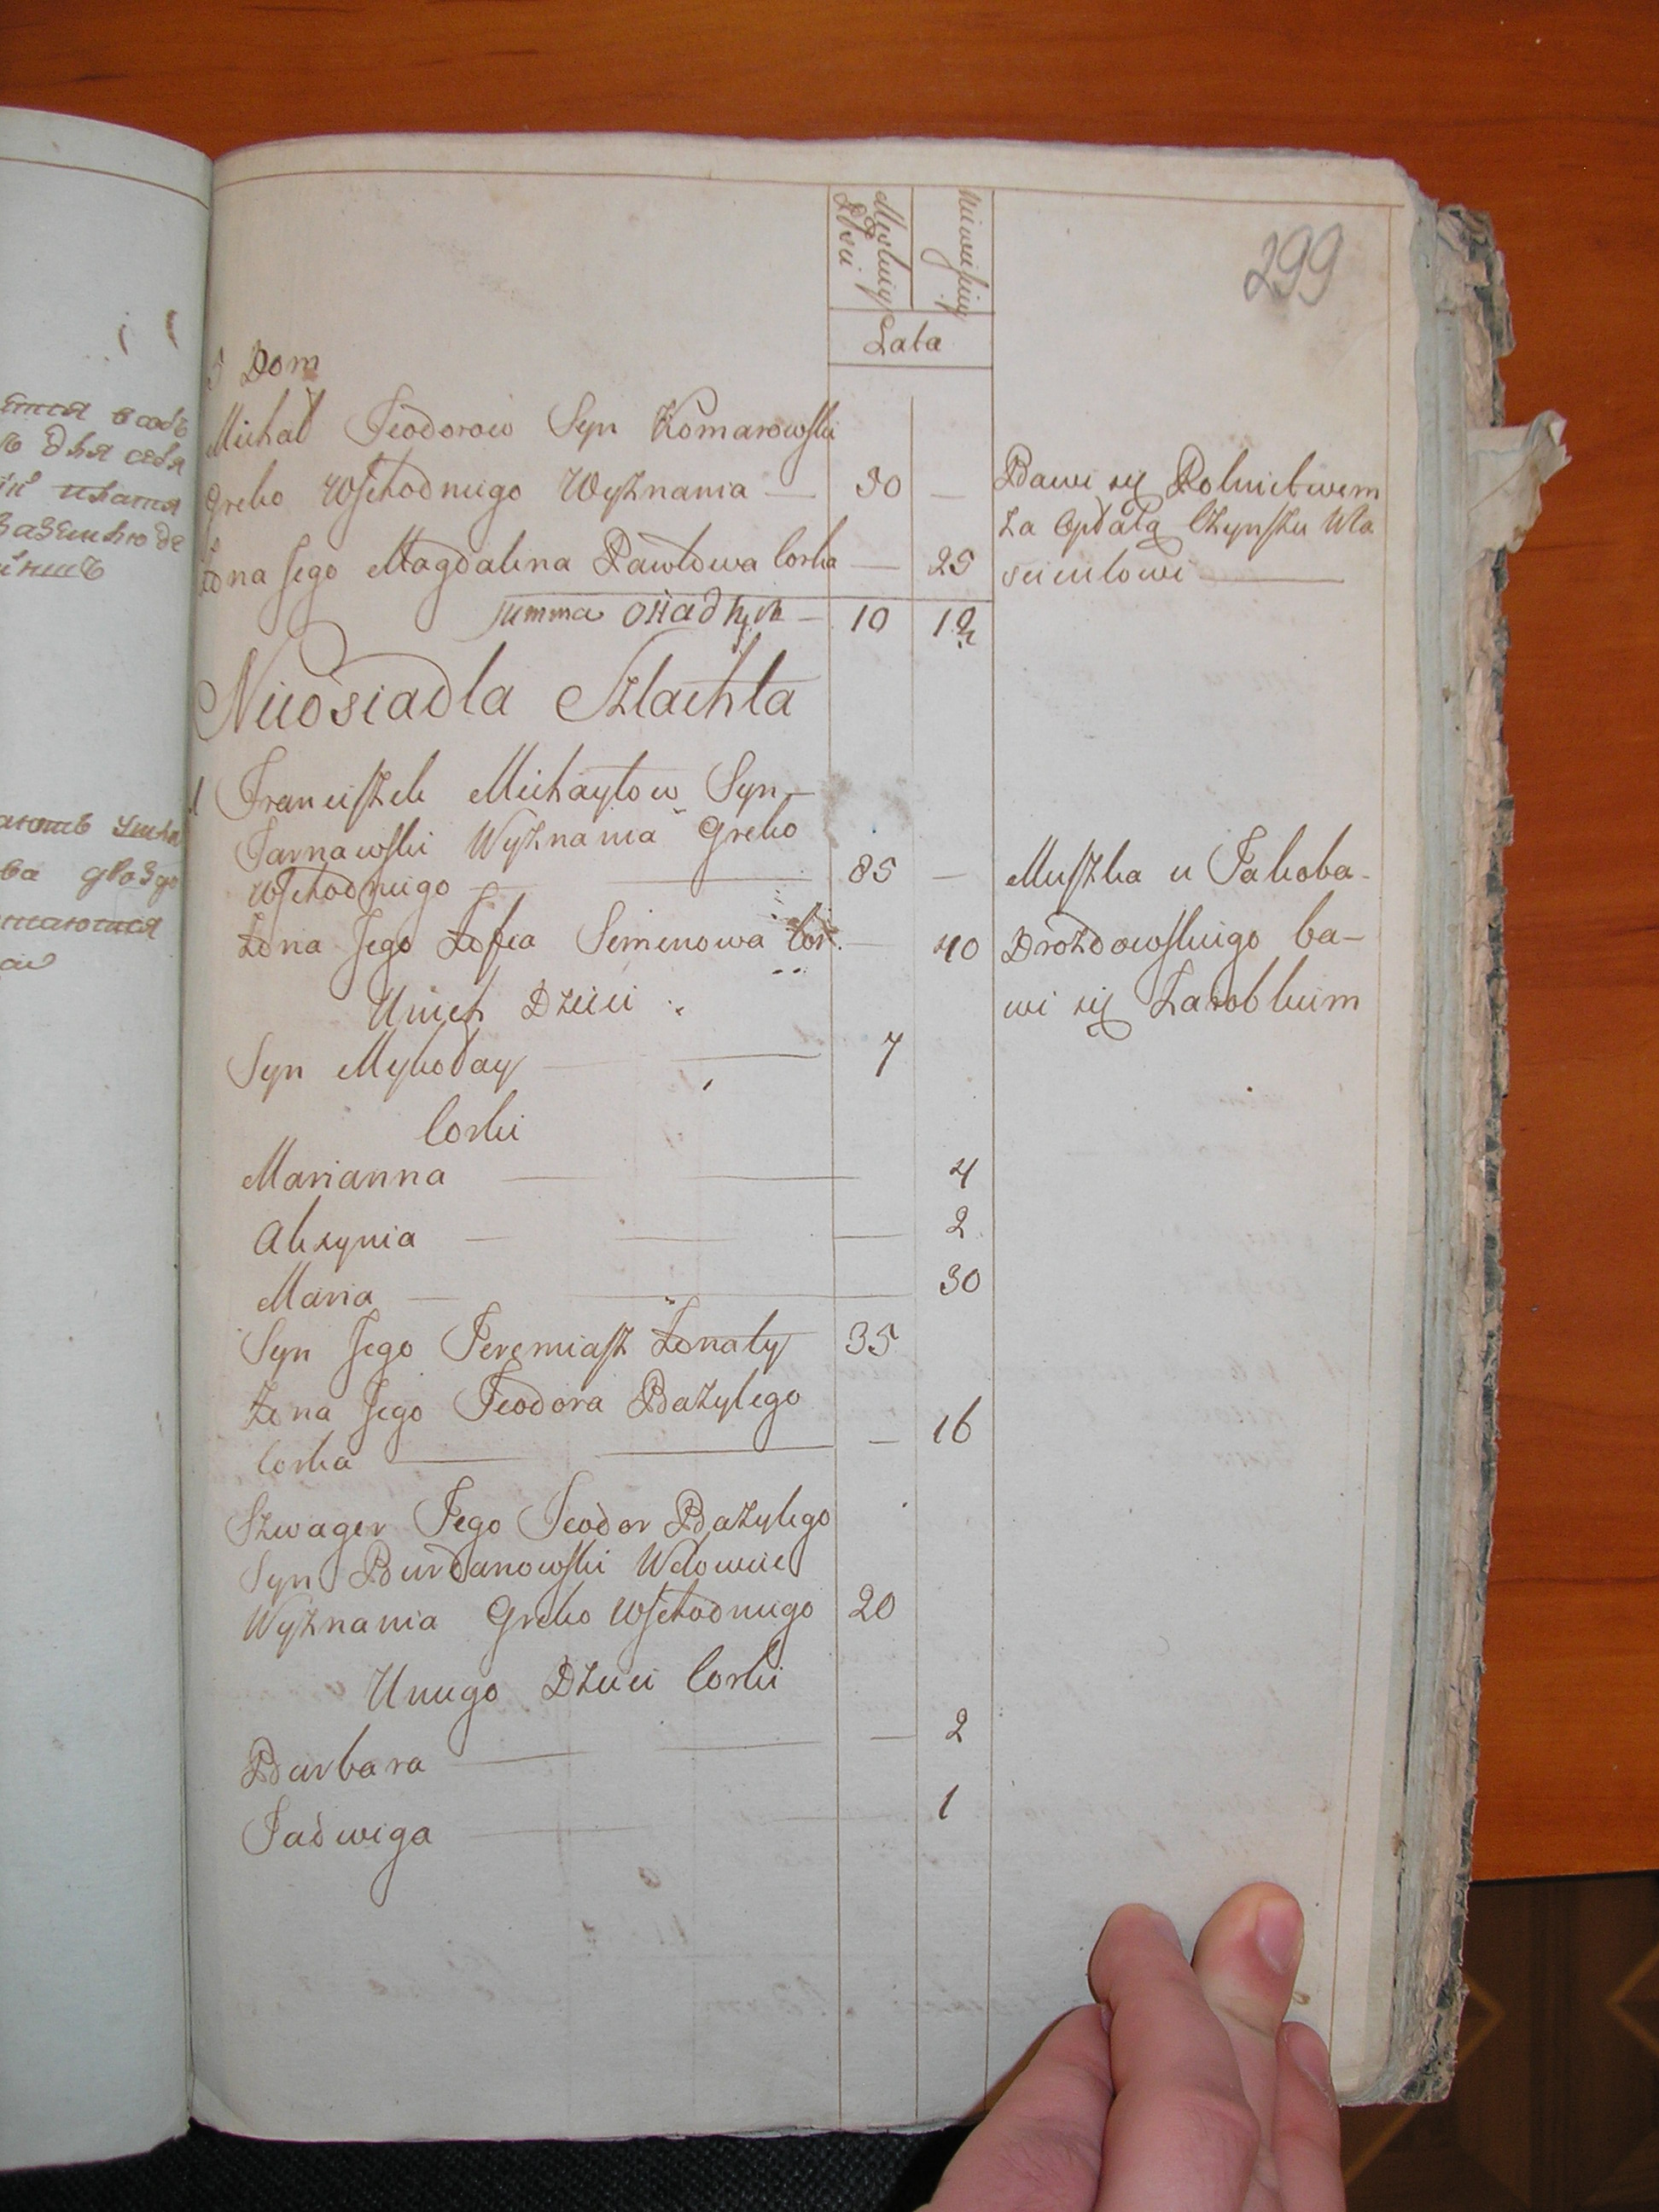 299
Męskiey Płci
Niewieściey
Lata
5 Dom
Michał Teodorow Syn Komarowski
Greko Wschodniego Wyznania — 30 —
Bawi się Rolnictwem
za Opłatą Czynszu Wła
scicielowi
Żona Jego Magdalena Pawłowa Corka — 25
summa osiadłych — 10 12
Nieosiadła Szlachta
1 Franciszek Michayłow Syn
Tarnawski Wyznania Greko
Wschodniego — 85 —
Mieszka u Jakoba
Żona Jego Zofia Semenowa Cor. — 40
Drozdowskiego ba-
Unich Dzieci
wi się Zarobkiem
Syn Mykołay — 7
Corki
Marianna — 4
Aksynia — 2
Maria — 30
Syn Jego Jeremiasz Żonaty 35
Żona Jego Teodora Bazylego
Corka — 16
Szwager Jego Teodor Bazylego
Syn Burdanowski Wdowiec
Wyznania Greko Wschodniego 20
Uniego Dzieci Corki
Barbara — 2
Jadwiga — 1